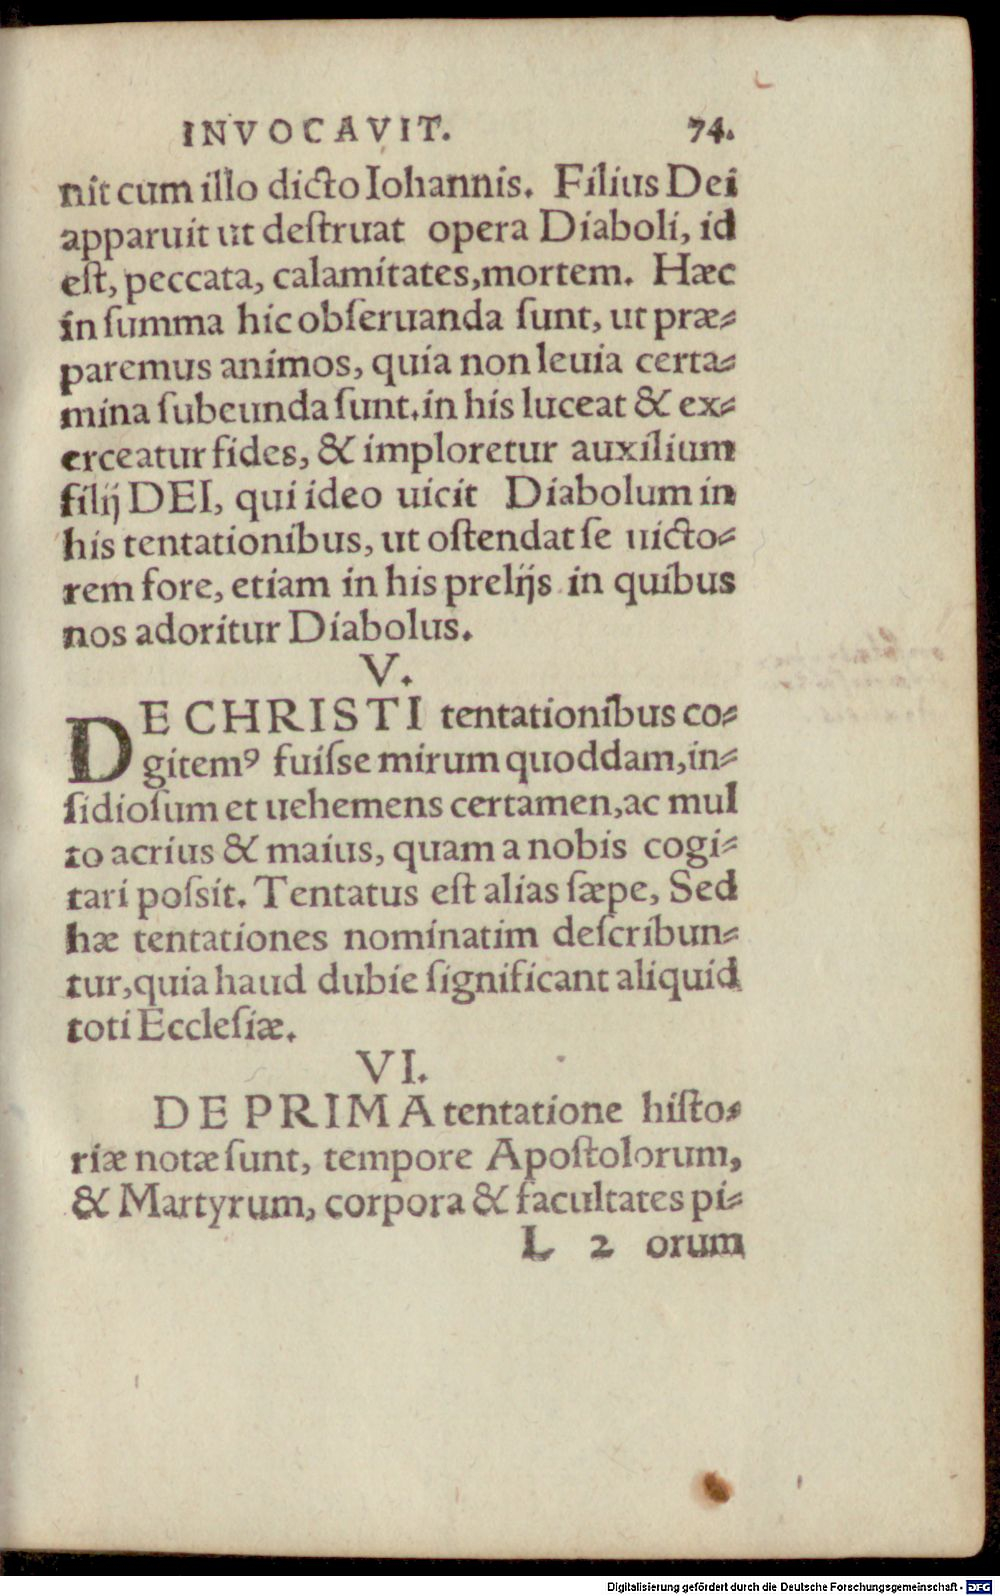 INVOCAVIT. 74.
nit cum illo dicto Iohannis. Filius Dei
apparuit ut deſtruat opera Diaboli, id
eſt, peccata, calamitates,mortem. Hæc
in ſumma hic obſeruanda ſunt, ut præ⸗
paremus animos, quia non leuia certa⸗
mina ſubeunda ſunt.in his luceat & ex⸗
erceatur fides, & imploretur auxilium
filij DEI, qui ideo uicit Diabolum in
his tentationibus, ut oſtendat ſe uicto⸗
rem fore, etiam in his prelijs in quibus
nos adoritur Diabolus.
V.
DE CHRISTI tentationibus co⸗
gitemꝰ fuiſse mirum quoddam,in⸗
ſidioſum et uehemens certamen,ac mul
to acrius & maius, quam a nobis cogi⸗
tari poſsit. Tentatus eſt alias ſæpe, Sed
hæ tentationes nominatim deſcribun⸗
tur,quia haud dubie ſignificant aliquid
toti Eccleſiæ.
VI.
DE PRIMA tentatione hiſto⸗
riæ notæ ſunt, tempore Apoſtolorum,
& Martyrum, corpora & facultates pi⸗
L 2 orum
Digitalisierung gefördert durch die Deutsche Forschungsgemeinschaft - DFG